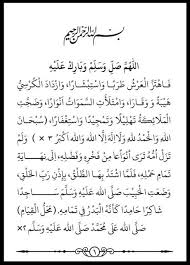 بسم الله الرحمن الرحيم
اللهم صل وسلم وبارك عليه
فاهتز العرش طربا واستبشارا، وازداد الكرسي
هيبة ووقارا، وامتلأت السموات أنوارا، وضجت
الملائكة تهليلا وتمجيدا واستغفارا (سبحان
الله والحمد لله ولا إله إلا الله والله أكبر ٣×) ولم
تزل أمه ترى أنواعا من فخره وفضله، إلى نهاية
تمام حمله، فلما اشتد بها الطلق، بإذن رب الخلق،
وضعت الحبيب صلى الله عليه وسلم ساجدا
شاكرا حامدا كأنه البدر في تمامه. (محل القيام)
صلى الله على محمد صلى الله عليه وسلم ٢×
١